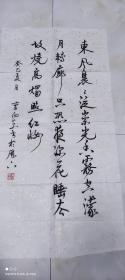 東風裊々泛崇光香霧空濛
月轉廊只恐夜深花睡去
故燒高燭照紅妝
癸巳夏月